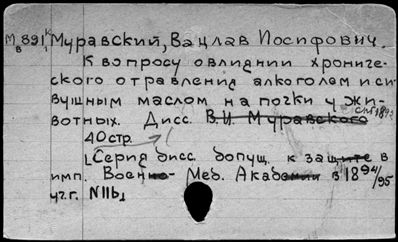 М 891 Муравский, Вацлав Иосифович.
в
К вопросу о влиянии хрониче-
ского отравления алкоголем и си-
вушным маслом на почки у жи-
вотных. Дисс. В.И. Муравского СПб 1895
40 стр.
[Серия дисс. допущ. к защите в
имп. Военно-Мед. Академии в 1894/95
уч.г. N11b]